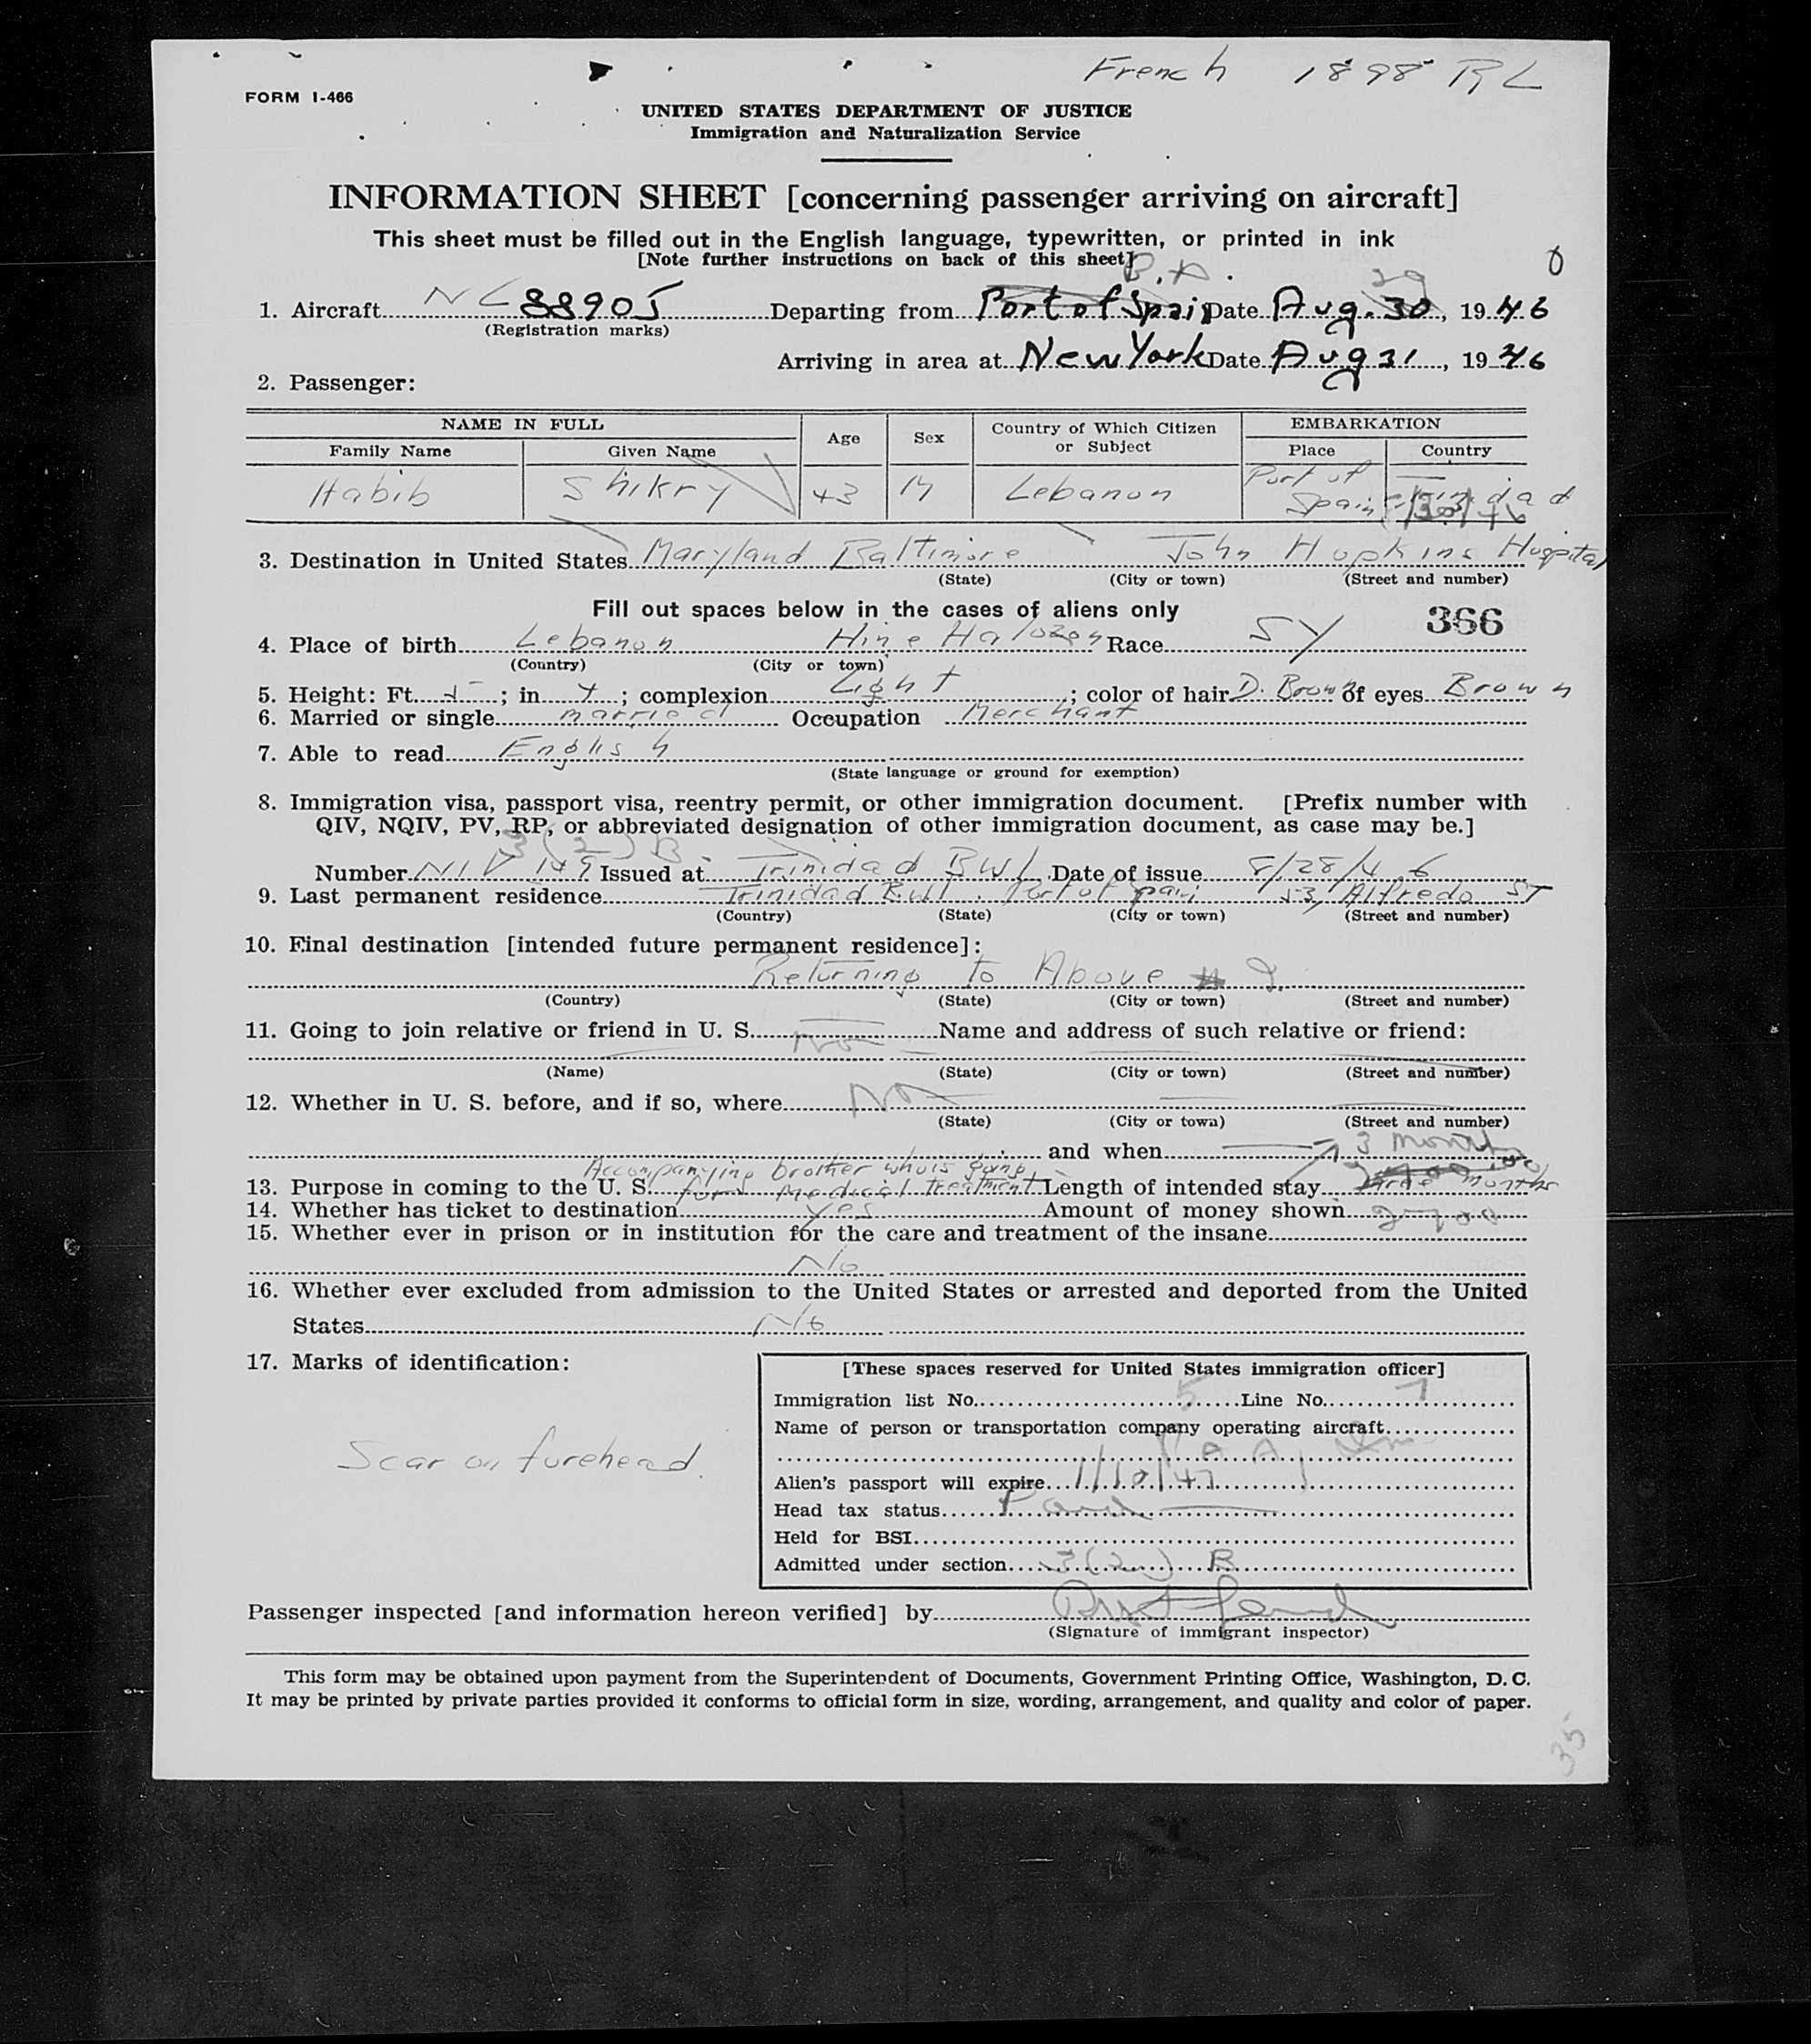 French 1898 RL
FORM I-466
UNITED STATES DEPARTMENT OF JUSTICE
Immigration and Naturalization Service
INFORMATION SHEET [concerning passenger arriving on aircraft]
This sheet must be filled out in the English language, typewritten, or printed in ink
[Note further instructions on back of this sheet]
B.A. 29
1. Aircraft NC88905 Departing from Port of Spain Date Aug. 30, 1946
(Registration marks)
Arriving in area at New York Date Aug 31, 1946
2. Passenger:
NAME IN FULL Age Sex Country of Which Citizen or Subject EMBARKATION
Family Name Given Name Place Country
Habib Shikry 43 M Lebanon Port of Spain Trinidad
3. Destination in United States Maryland Baltimore John Hopkins Hospital
(State) (City or town) (Street and number)
Fill out spaces below in the cases of aliens only 366
4. Place of birth Lebanon Hine Race SY
(Country) (City or town)
5. Height: Ft. 5; in 4; complexion Light; color of hair D. Brown of eyes Brown
6. Married or single married Occupation Merchant
7. Able to read English
(State language or ground for exemption)
8. Immigration visa, passport visa, reentry permit, or other immigration document. [Prefix number with
QIV, NQIV, PV, RP, or abbreviated designation of other immigration document, as case may be.]
3(2) B
Number NIV 149 Issued at Trinidad BWI Date of issue 8/28/46
9. Last permanent residence Trinidad BWI. Port of Spain 53, Alfredo ST
(Country) (State) (City or town) (Street and number)
10. Final destination [intended future permanent residence]:
Returning to Above # 9.
(Country) (State) (City or town) (Street and number)
11. Going to join relative or friend in U. S. No Name and address of such relative or friend:
(Name) (State) (City or town) (Street and number)
12. Whether in U. S. before, and if so, where No
(State) (City or town) (Street and number)
and when 3 months
Accompanying brother who is going
13. Purpose in coming to the U. S. for Medical treatment Length of intended stay three months
14. Whether has ticket to destination Yes Amount of money shown
15. Whether ever in prison or in institution for the care and treatment of the insane
No
16. Whether ever excluded from admission to the United States or arrested and deported from the United
States No
17. Marks of identification:
Scar on forehead.
[These spaces reserved for United States immigration officer]
Immigration list No. 5 Line No. 7
Name of person or transportation company operating aircraft
P A A
Alien's passport will expire 1/10/47
Head tax status
Held for BSI
Admitted under section 3(2) B
Passenger inspected [and information hereon verified] by
(Signature of immigrant inspector)
This form may be obtained upon payment from the Superintendent of Documents, Government Printing Office, Washington, D. C.
It may be printed by private parties provided it conforms to official form in size, wording, arrangement, and quality and color of paper.
35